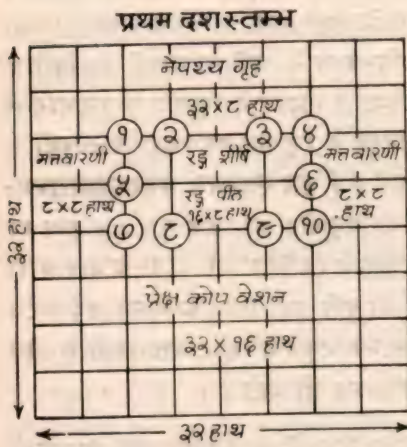 प्रथम दशस्तम्भ
नेपथ्य गृह
३२ x ८ हाथ
१ २ ३ ४
मत्तवारणी रङ्ग शीर्ष मत्तवारणी
५ रङ्ग पीठ ६
८ x ८ हाथ १६ x ८ हाथ ८ x ८ हाथ
७ ८ ९ १०
प्रेक्ष कोप वेशन
३२ x १६ हाथ
३२ हाथ
३२ हाथ